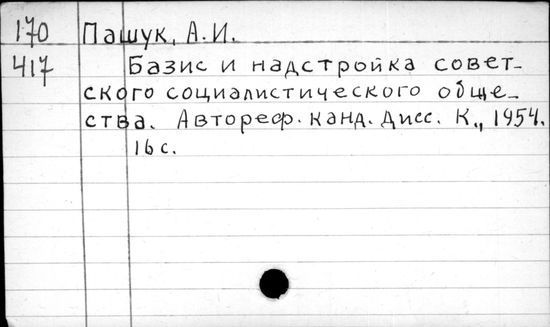 170 Пашук, А.И.
417 Базис и надстройка совет-
ского социалистического обще-
ства. Автореф. канд. дисс. К., 1954.
16 с.